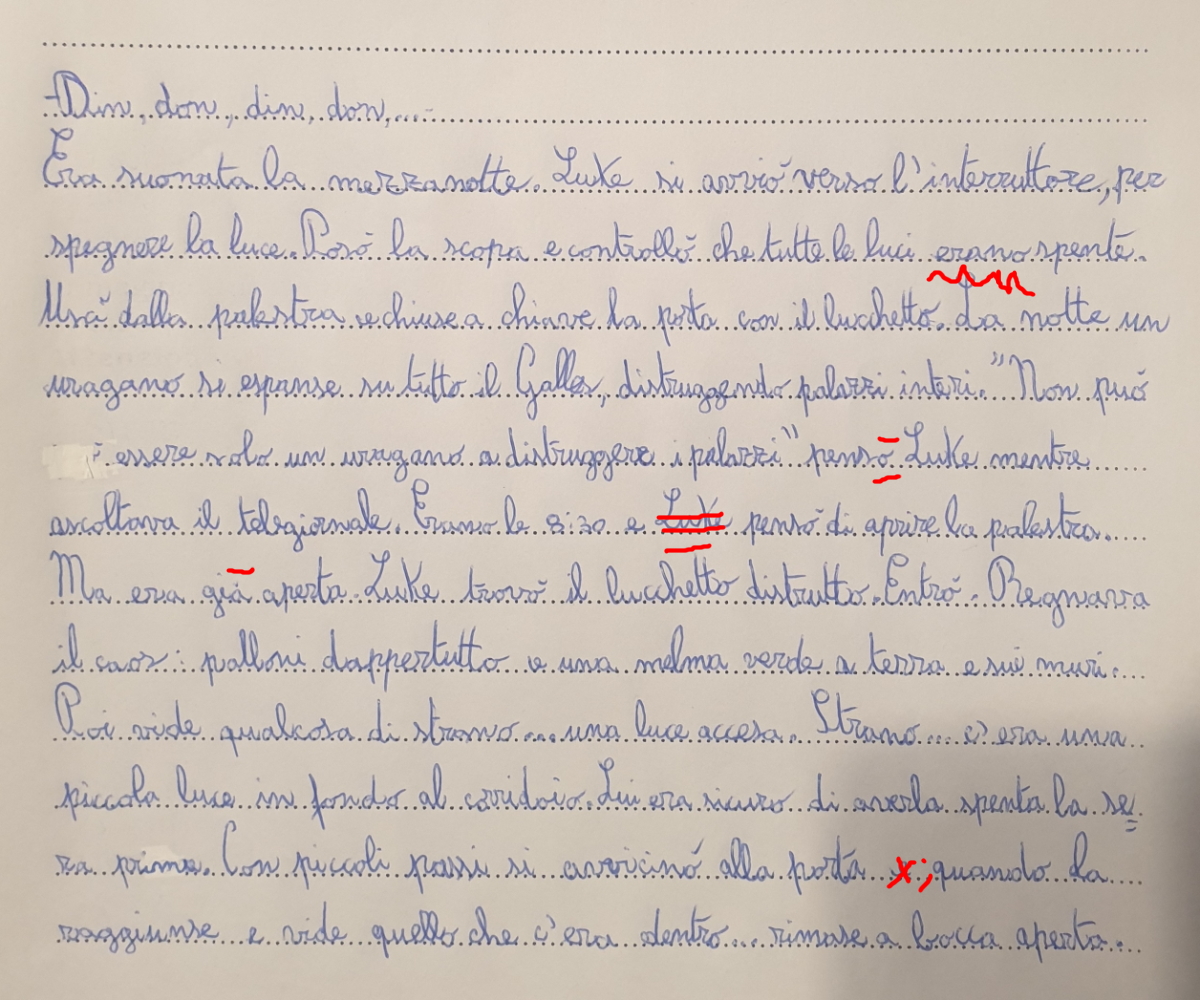 -Din, don, din, don,...-
Era suonata la mezzanotte. Luke si avviò verso l'interruttore, per
spegnere la luce. Posò la scopa e controllò che tutte le luci erano spente.
Uscì dalla palestra e chiuse a chiave la porta con il lucchetto. La notte un
uragano si espanse su tutto il Galles, distruggendo palazzi interi. "Non può
essere solo un uragano a distruggere i palazzi" pensò Luke mentre
ascoltava il telegiornale. Erano le 8:30 e Luke pensò di aprire la palestra.
Ma era già aperta. Luke trovò il lucchetto distrutto. Entrò. Regnava
il caos: palloni dappertutto e una melma verde a terra e sui muri.
Poi vide qualcosa di strano... una luce accesa. Strano... c'era una
piccola luce in fondo al corridoio. Lui era sicuro di averla spenta la se
ra prima. Con piccoli passi si avvicinò alla porta x; quando la
raggiunse e vide quello che c'era dentro... rimase a bocca aperta...